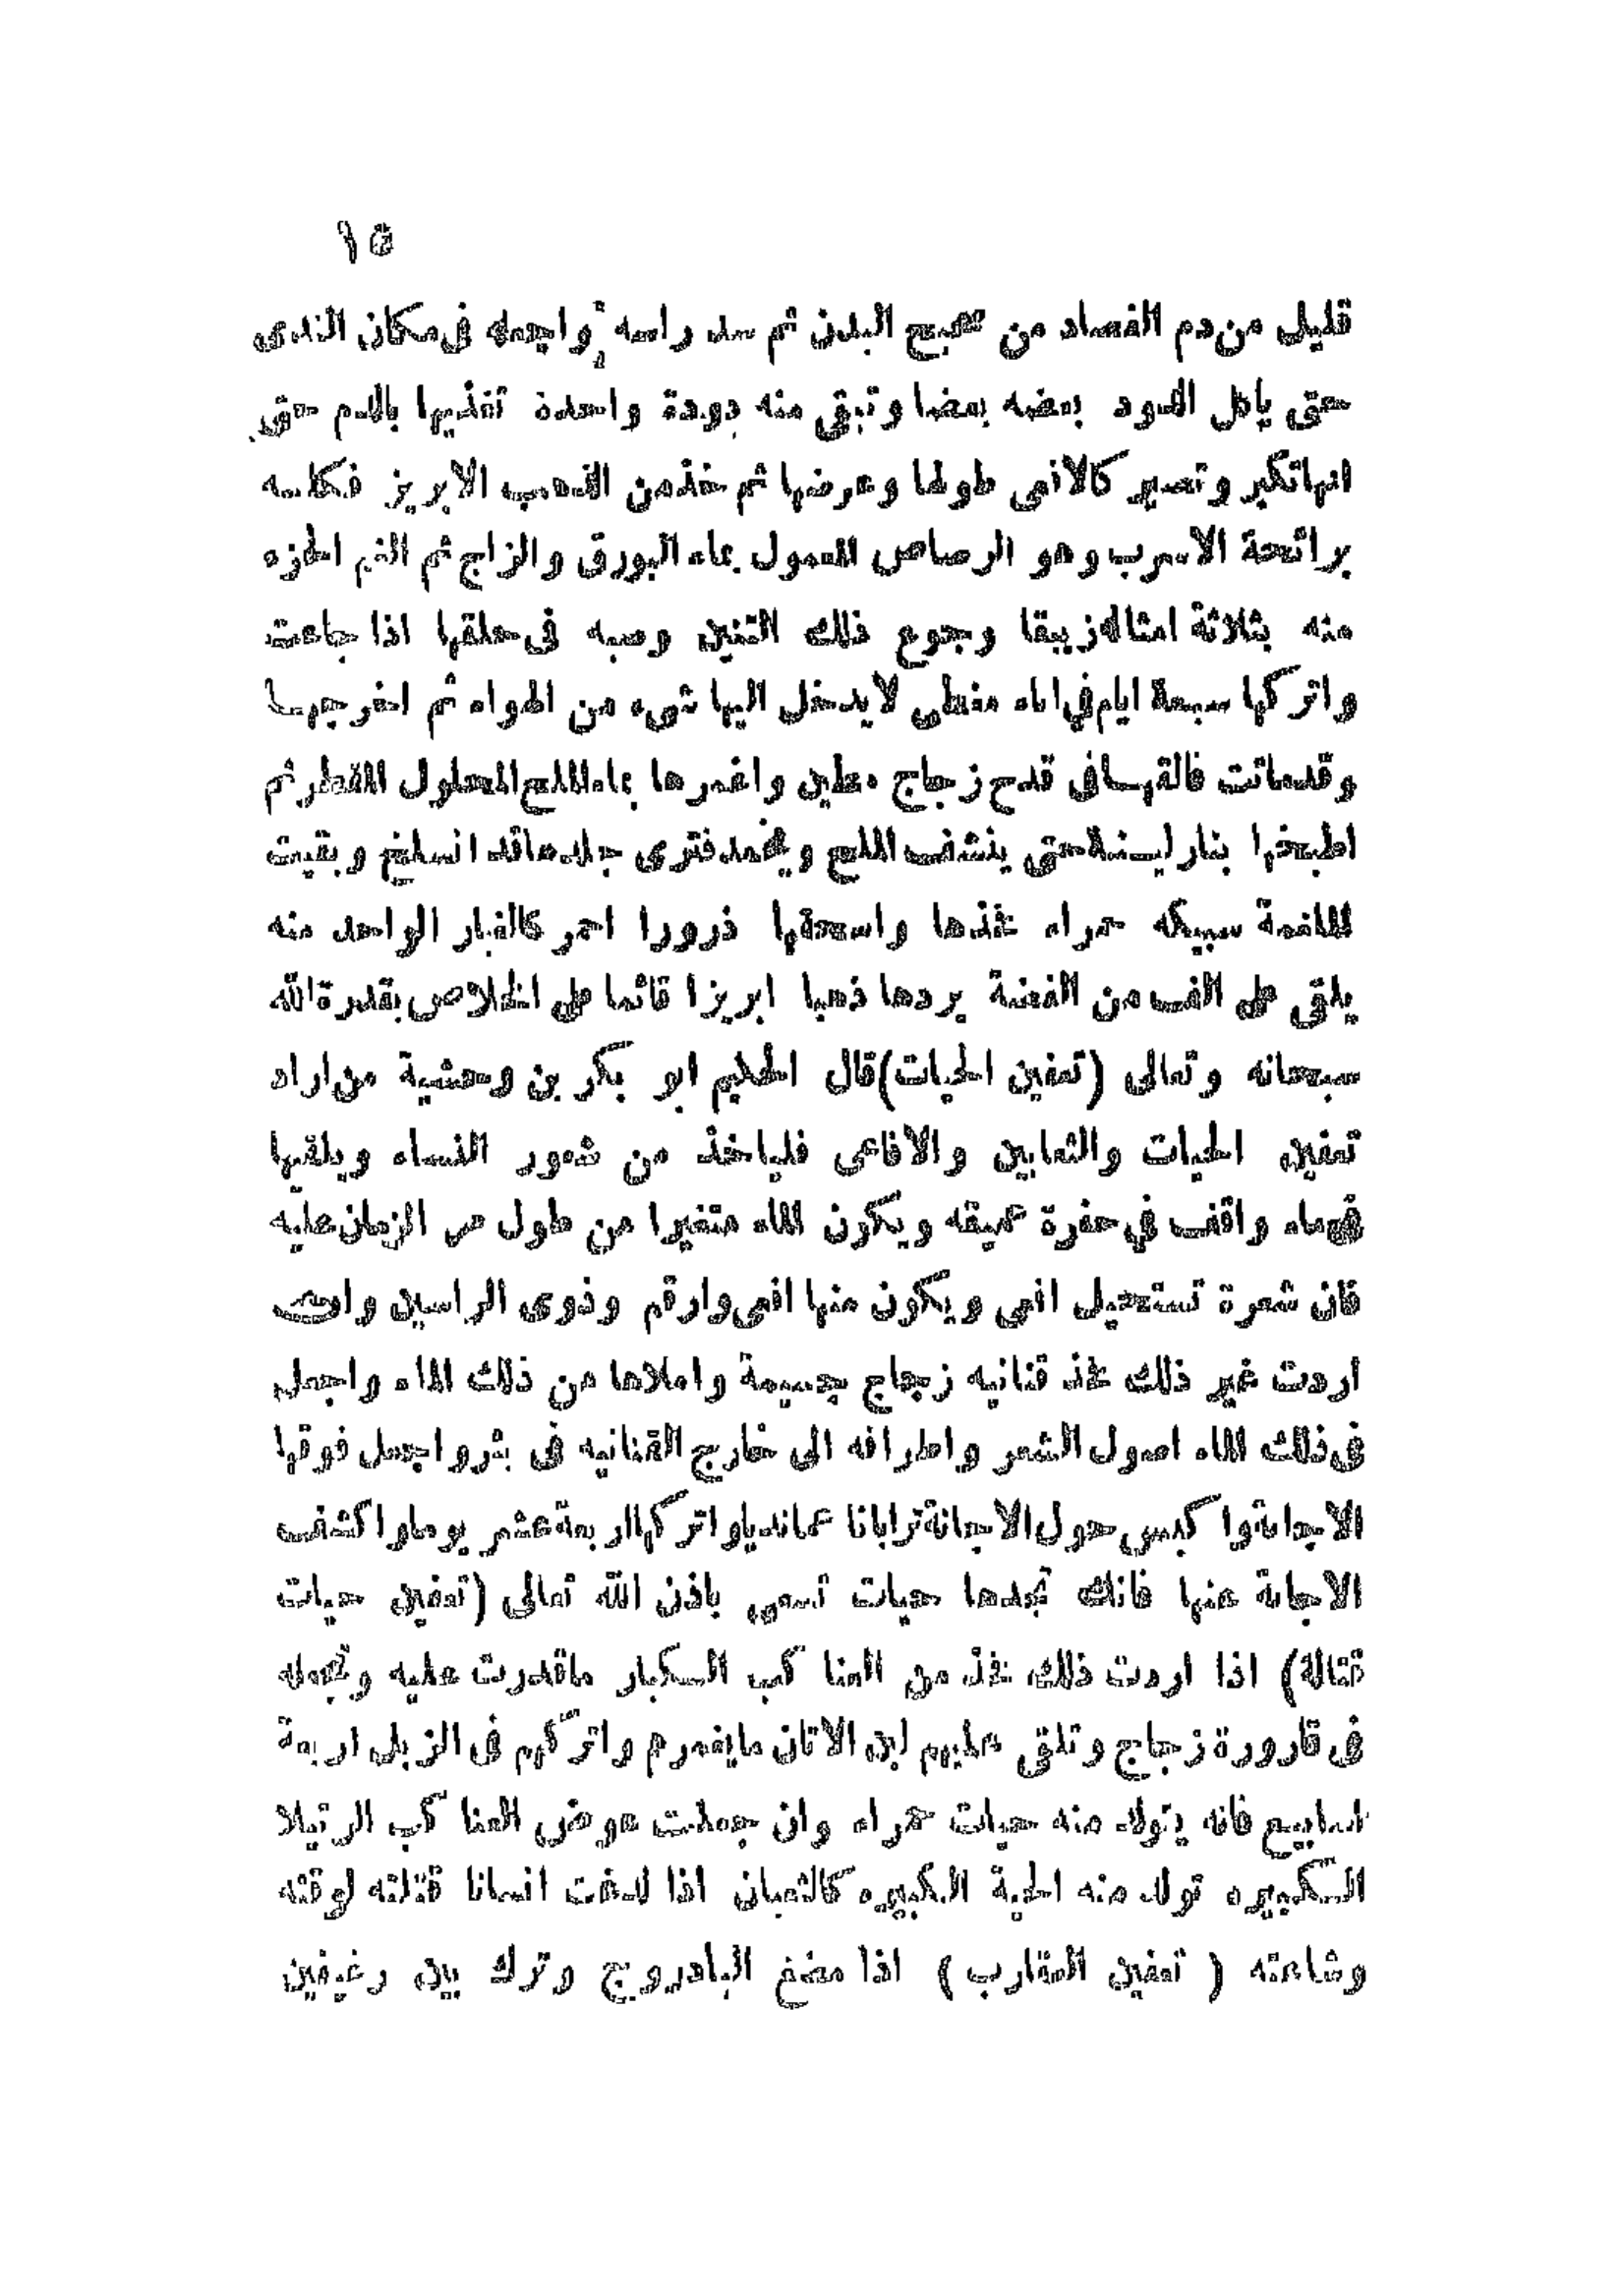 ١٥
قليل من دم الفصاد من صحيح البدن ثم سد راسه واجعله فى مكان الندى
حتى ياكل الدود بعضه بعضا وتبقى منه دودة واحدة تغذيها بالدم حتى
انها تكبر وتصير كالافعى طولها وعرضها ثم خذ من الذهب الابريز فكلسه
برائحة الاسرب وهو الرصاص المعمول بماء البورق والزاج ثم الغم الجزء
منه بثلاثة امثاله زيبقا وجوع ذلك التنين وصبه فى حلقها اذا جاعت
واتركها سبعة ايام فى اناء مغطى لا يدخل اليها شىء من الهواء ثم اخرجها
وقد ماتت فالقها فى قدح زجاج مطين واغمرها بماء الملح المحلول المقطر ثم
اطبخها بنار لينة حتى ينشف الملح ويجمد فترى جلدها قد انسلخ وبقيت
الملغمة سبيكه حمراء فخذها واسحقها ذرورا احمر كالغبار الواحد منه
يلقى على الف من الفضة يردها ذهبا ابريزا قائما على الخلاص بقدرة الله
سبحانه وتعالى (تعفين الحيات) قال الحكيم ابو بكر بن وحشية من اراد
تعفين الحيات والثعابين والافاعى فلياخذ من شعور النساء ويلقيها
فى ماء واقف في حفرة عميقه ويكون الماء متغيرا من طول مر الزمان عليه
فان شعرة تستحيل افعى ويكون منها افعى وارقم وذوى الراسين وان
اردت غير ذلك فخذ قنانيه زجاج جسيمة واملاها من ذلك الماء واجعل
فى ذلك الماء اصول الشعر واطرافه الى خارج القنانيه فى بئر واجعل فوقها
الاجانة واكبس حول الاجانة ترابا ناعما نديا واتركها اربعة عشر يوما واكشف
الاجانة عنها فانك تجدها حيات تسعى باذن الله تعالى (تعفين حيات
قتالة) اذا اردت ذلك فخذ من العناكب الكبار ما قدرت عليه وتجعله
فى قارورة زجاج وتلقى عليهم لبن الاتان ما يغمرهم واتركهم فى الزبل اربعة
اسابيع فانه يتولد منه حيات حمراء وان جعلت عوض العناكب الرتيلا
الكبيره تولد منه الحية الكبيره كالثعبان اذا لدغت انسانا قتلته لوقته
وساعته (تعفين العقارب) اذا مضغ البادروج وترك بين رغيفين